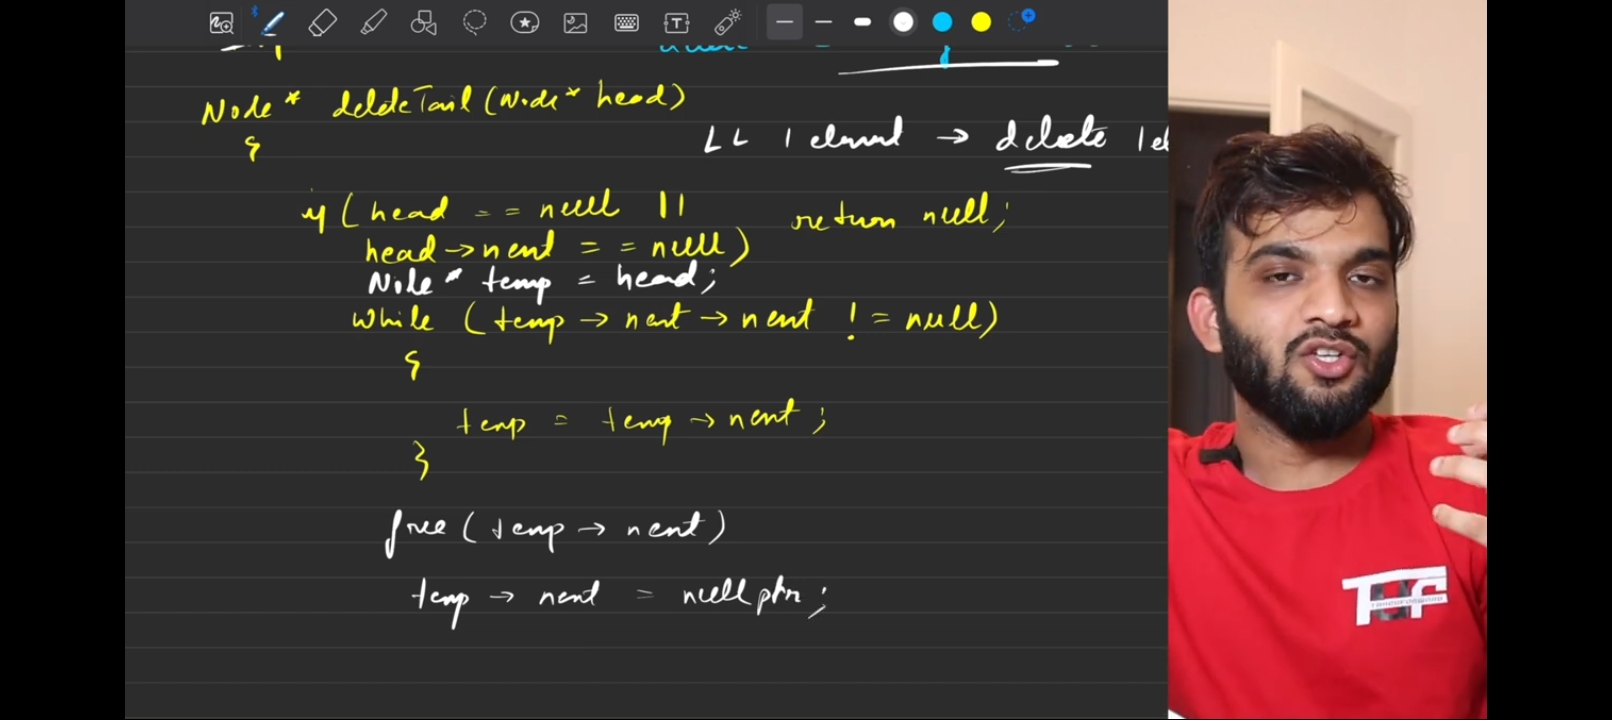 Node* deleteTail(Node* head)
{
LL 1 element → delete 1el
if(head == null ||
return null;
head→next == null)
Node* temp = head;
while (temp→next→next != null)
{
temp = temp→next;
}
free(temp→next)
temp→next = nullptr;
TUF